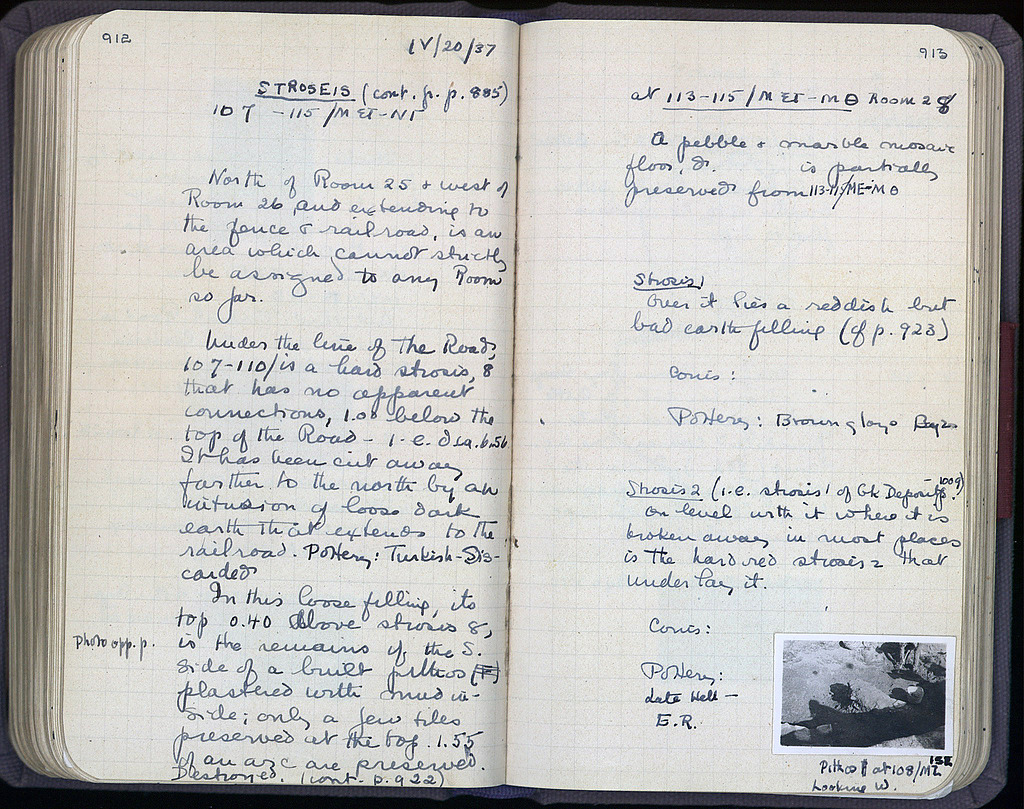 912
IV/20/37
STROSEIS (cont. fr. p. 885)
107 -115/ΜΣΤ-ΝΓ
North of Room 25 + west of
Room 26, and extending to
the fence & railroad, is an
area which cannot strictly
be assigned to any Room
so far.
Under the line of the Road,
107-110/ is a hard strosis, 8
that has no apparent
connections, 1.00 below the
top of the Road - i.e.
It has been cut away
farther to the north by an
intrusion of loose dark
earth that extends to the
railroad. Pottery: Turkish - Dis-
carded
In this loose filling, its
top 0.40 above strosis 8,
Photo opp. p.
is the remains of the S.
side of a built pithos
plastered with mud in-
side; only a few tiles
preserved at the top. 1.55
of an arc are preserved.
Destroyed. (cont. p. 922)
913
at 113-115/ΜΣΤ-ΜΘ Room 28
A pebble + marble mosaic
floor, is partially
preserved from 113-115/ΜΕ-ΜΘ
Strosis 1
Over it lies a reddish but
bad earth filling (cf p. 923)
Coins:
Pottery: Brown glaze Byz
Strosis 2 (i.e. strosis 1 of Gk Deposits 1009)
On level with it where it is
broken away in most places
is the hard red strosis 2 that
underlay it.
Coins:
Pottery:
Late Hell -
E.R.
Pithos at 108/ΜΣ
Looking W.